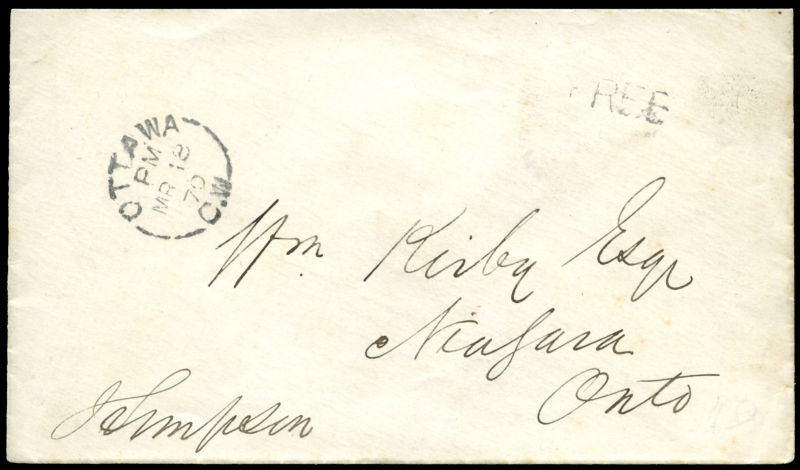 REE
OTTAWA
PM
MR 18
70
C.W
Wm Kirby Esqr
Niagara
Onto
JSimpson